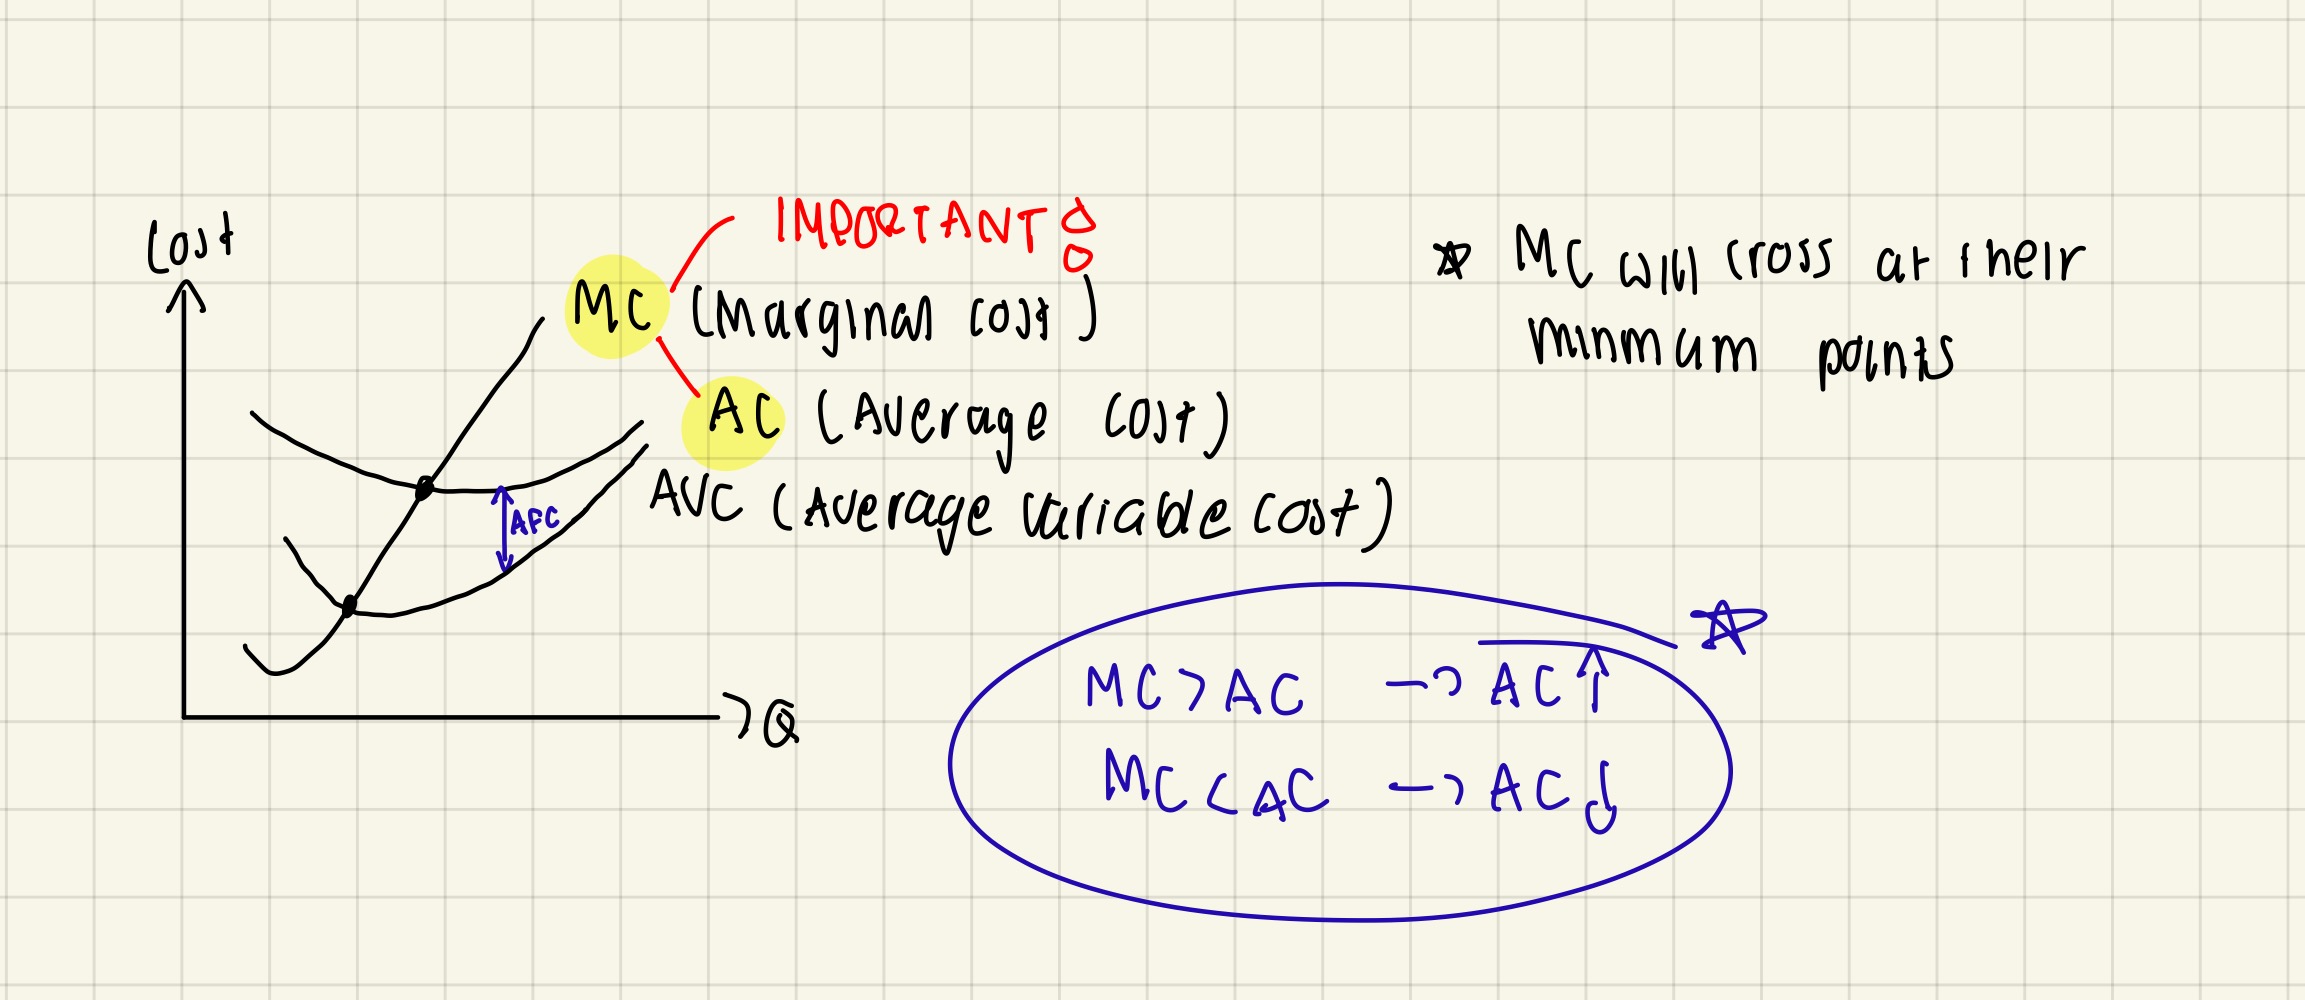 Cost
IMPORTANT!
MC (Marginal cost)
AC (Average cost)
AVC (Average variable cost)
AFC
Q
☆ MC will cross at their
minmum points
MC > AC → AC ↑ ☆
MC < AC → AC ↓